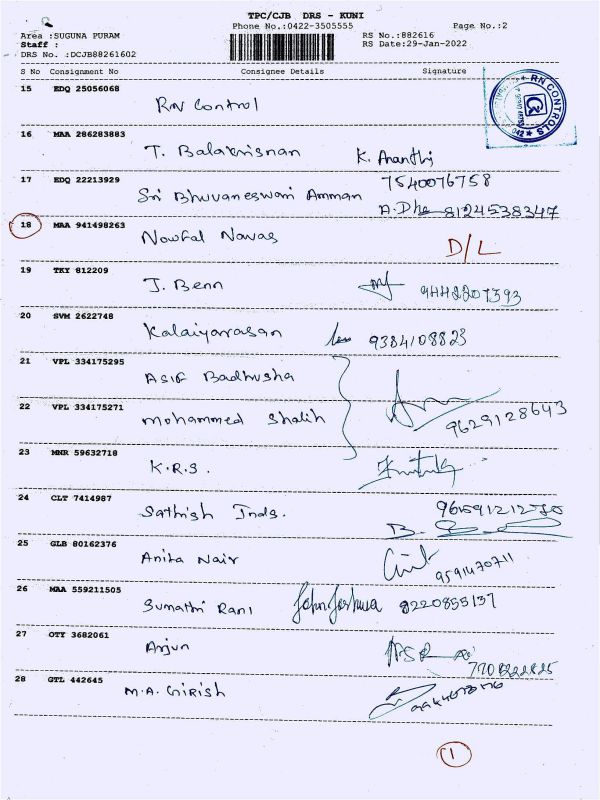 TPC/CJB DRS - KUNI
Phone No.:0422-3505555 Page No.:2
Area :SUGUNA PURAM RS No.:882616
Staff : RS Date:29-Jan-2022
DRS No. :DCJB88261602
S No Consignment No Consignee Details Signature
15 EDQ 25056068
RN Control
RN CONTROLS
16 MAA 286283883
T. Balakrisnan K. Ananthi
17 EDQ 22213929 7540076758
Sri Bhuvaneswari Amman A.Dha 8124538347
18 MAA 941498263
Nowfal Nawas D/L
19 TKY 812209
J. Benn 9442207393
20 SVM 2622748
Kalaiyarasan 9384108823
21 VPL 334175295
Asif Badhusha
22 VPL 334175271
Mohammed Shalih 9629128643
23 MNR 59632718
K.R.S.
24 CLT 7414987
Sathish Inds.
B.
25 GLB 80162376
Anita Nair 9591470711
26 MAA 559211505
Sumathi Rani John Joshua 8220855137
27 OTY 3682061
Arjun
28 GTL 442645
M.A. Girish
1